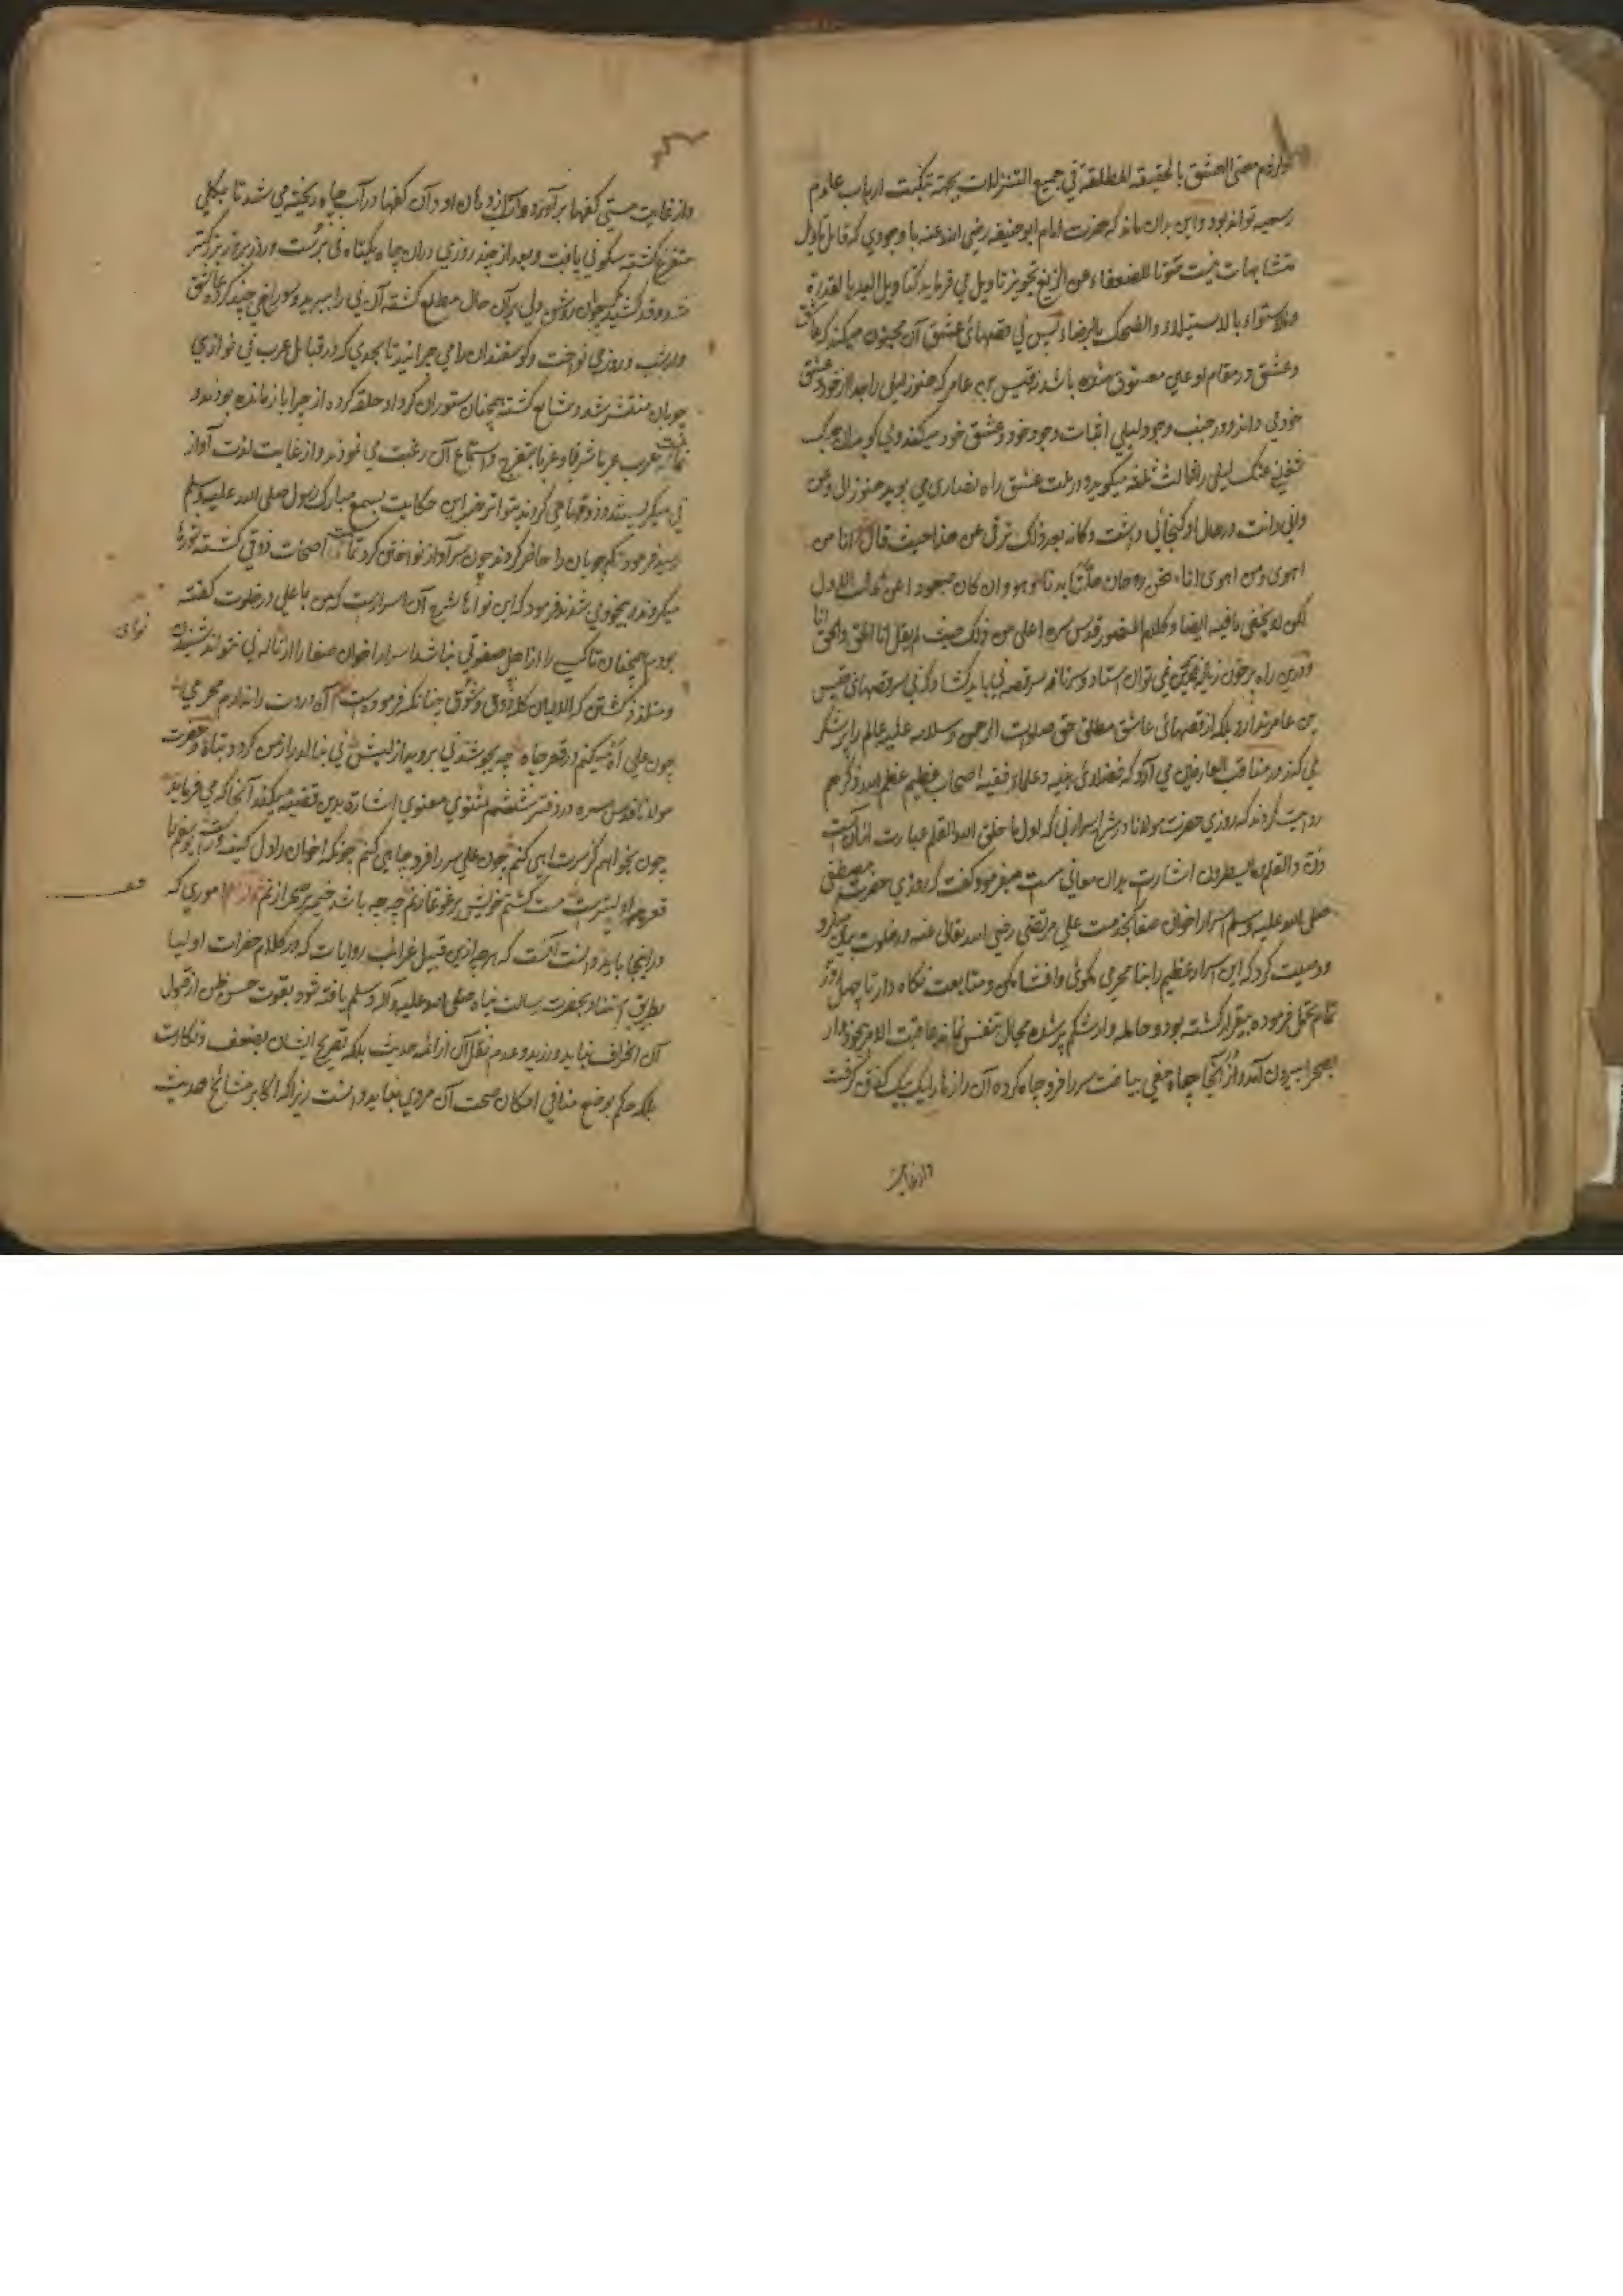 لوازم معنی العشق بالحقیقه المطلقه فی جمیع التنزلات بجهة تبکیت ارباب علوم
رسمیه تواند بود واین بدان ماند که حضرت امام ابوحنیفه رضی الله عنه با وجودی که قایل تاویل
متشابهات نیست صونا للضعفاء عن الزیغ تجویز تاویل می فرماید کتاویل الید بالقدرة
والاستواء بالاستیلاء والضحک بالرضاء پس نی قصهای عشق آن مجنون میکند که عاشق
وعشق در مقام او عین معشوق شده باشد نه قیس بن عامر که هنوز لیلی را جدا از خود وعشق
خودی داند ودر جنب وجود لیلی اثبات وجود خود وعشق خود میکند
لیلی را ثالث ثلثه میگوید ودر ملت عشق راه نصاری می پوید هنوز انی ومن
وانی وانت در حال او گنجائی داشت وکانه بعد ذلک ترقی عن هذا حیث قال انا من
اهوی ومن اهوی انا نحن روحان حللنا بدنا وهو وان کان صعودا عن
لکن لا یخفی ما فیه ایضا وکلام المنصور قدس سره اعلی من ذلک حیث لم یقل انا الحق والحق انا
ودرین راه پرخون زیاده برین نمی توان استاد وسرنامه سر قصه نی باید کشاد که نی سر قصهای قیس
بن عامر ندارد بلکه از قصهای عاشق مطلق حق صلوات الرحمن وسلامه علیه عالم را پر شکر
می کند در مناقب العارفین می آرد که فضلاء دینیه وعلماء فقیه اصحاب عظیم عظم الله ذکرهم
روایت کردند که روزی حضرت مولانا در شرح اسرار نی که اول ما خلق الله القلم عبارت از آنست
ون والقلم وما یسطرون اشارت بدان معانی است میفرمود وگفت که روزی حضرت مصطفی
صلی الله علیه وسلم اسرار اخوان صفا بخدمت علی مرتضی رضی الله تعالی عنه در خلوت بیان کرد
ووصیت کرد که این اسرار عظیم را بنامحرمی نگوئی وافشا نکنی ومتابعت نگاه دار تا چهل روز
تمام تحمل فرموده بیقرار گشته بود وحامله وار شکم پر شده مجال تنفس نمانده عاقبت الامر بیخود وار
بصحرا بیرون آمد واز آنجا چاه مغی بیافت سر را فرو چاه کرده آن رازها را یک بیک گفتن گرفت
واز غایت
واز غایت مستی کفها بر آورده واز دهان او در آن کفها در آب چاه ریخته می شد تا بکلی
متفرغ گشته سکونی یافت وبعد از چند روزی در آن چاه یکتاه نی برست وروز بروز بزرگتر
شد وقد کشید مگر جوان روشن دلی بر آن حال مطلع گشته آن نی را ببرید وسوراخی چند کرد وعاشق
وار شب وروز می نواخت وگوسفندان را می چرانید تا بحدی که در قبایل عرب نی نوازی
چوپان منتشر شد وشایع گشته همچنان ستوران گرد او حلقه کرده از چرا باز مانده بودند و
تمامت عرب عربا شرقا وغربا بتفرج واستماع آن رغبت می نمودند واز غایت لذت آواز
نی میگریستند وذوقها می کردند متواتر خبر این حکایت بسمع مبارک رسول صلی الله علیه وسلم
رسید فرمود که چوپان را حاضر کردند چون سر آواز نواختن کرد تمامت اصحاب ذوقی گشته شورها
میکردند وبیخودی شدند فرمود که این نواها شرح آن اسرارست که من با علی در خلوت گفته
نوای
بودم همچنان تا کسی را از اهل صفوتی نباشد اسرار اخوان صفا را از ناله نی نتواند شنیدن
ومتلذذ گشتن که الایمان کله ذوق وشوق چنانکه فرموده است آه دردت را ندارم محرمی
چون علی آه میکنم در قعر چاه چه بجوشد نی بروید از لبش نی بنالد راز من گردد تباه وحضرت
مولانا قدس سره در دفتر ششم مثنوی معنوی اشارة بدین قضیه میکند آنجا که می فرماید
چون بخواهم کز سرت آهی کنم چون علی سر را فرو چاهی کنم چونکه اخوان را دل کینه ورست یوسفم را
قعر
قعر چه اولیترست مست گشتم خویش بر غوغا زنم چه چه باشد خیمه بر صحرا زنم اموری که
در اینجا باید دانست آنست که هرچه ازین قبیل غرایب روایات که در کلام حضرات اولیا
بطریق اسناد بحضرت رسالت پناه صلی الله علیه وآله وسلم یافته شود بقوت حسن ظن از قبول
آن انحراف نباید ورزید وعدم نقل آن از ائمه حدیث بلکه تصریح ایشان بضعف ونکارت
بلکه حکم بوضع منافی امکان صحت آن مروی نباید دانست زیرا که اکابر مشایخ حدیث